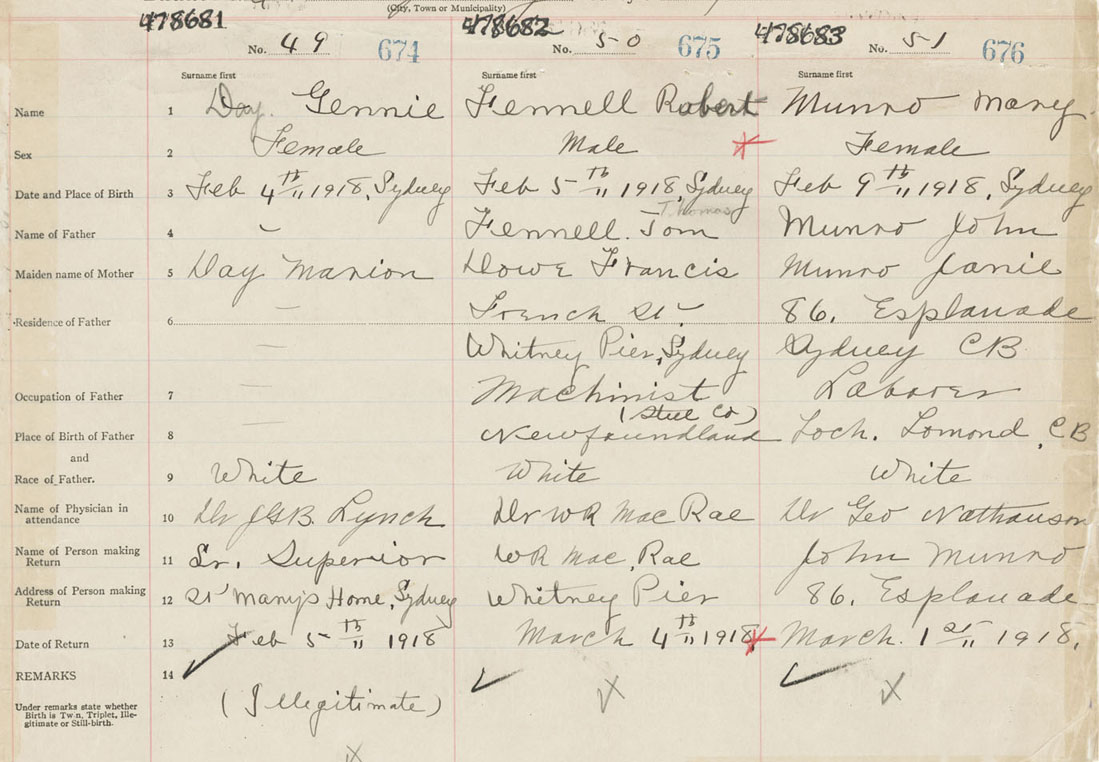 (City, Town or Municipality)
478681 478682 478683
No. 49 674 No. 50 675 No. 51 676
Surname first Surname first Surname first
Name 1 Day. Gennie Fennell Robert Munro Mary.
Sex 2 Female Male Female
Date and Place of Birth 3 Feb 4th 1918, Sydney Feb 5th 1918, Sydney Feb 9th 1918, Sydney
Thomas
Name of Father 4 – Fennell. Tom Munro John
Maiden name of Mother 5 Day Marion Dowe Francis Munro Janie
Residence of Father 6 – French St. 86, Esplanade
– Whitney Pier, Sydney Sydney CB
Occupation of Father 7 – Machinist Laborer
(Steel Co)
Place of Birth of Father 8 – Newfoundland Loch. Lomond, CB
and
Race of Father. 9 White White White
Name of Physician in attendance 10 Dr JGB. Lynch Dr WR MacRae Dr Geo Nathanson
Name of Person making Return 11 Sr. Superior WR Mac Rae John Munro
Address of Person making Return 12 St Mary's Home, Sydney Whitney Pier 86, Esplanade
Date of Return 13 Feb 5th 1918 March 4th 1918, March. 1st 1918,
REMARKS 14
Under remarks state whether
Birth is Twin, Triplet, Ille-
gitimate or Still-birth.
(Illegitimate)